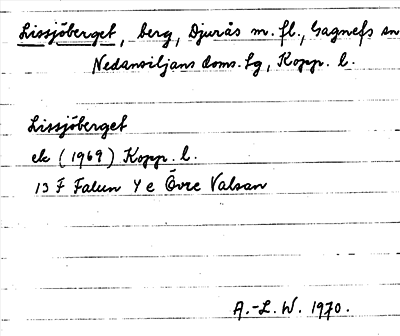 Lissjöberget, berg, Djurås m. fl., Gagnefs sn
Nedansiljans doms. tg, Kopp. l.
Lissjöberget
ek (1969) Kopp. l.
13 F Falun 4 e Övre Valsan
A.-L. W. 1970.